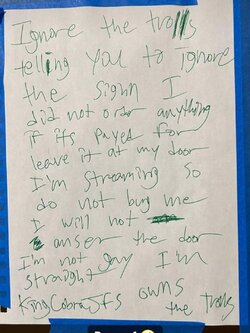 Ignore the trolls
telling you to ignore
the sighn I
did not order anything
if its payed for
leave it at my door
I'm streaming so
do not bug me
I will not
anser the door
I'm not gay I'm
straight
KingCobraJFS owns
the trolls